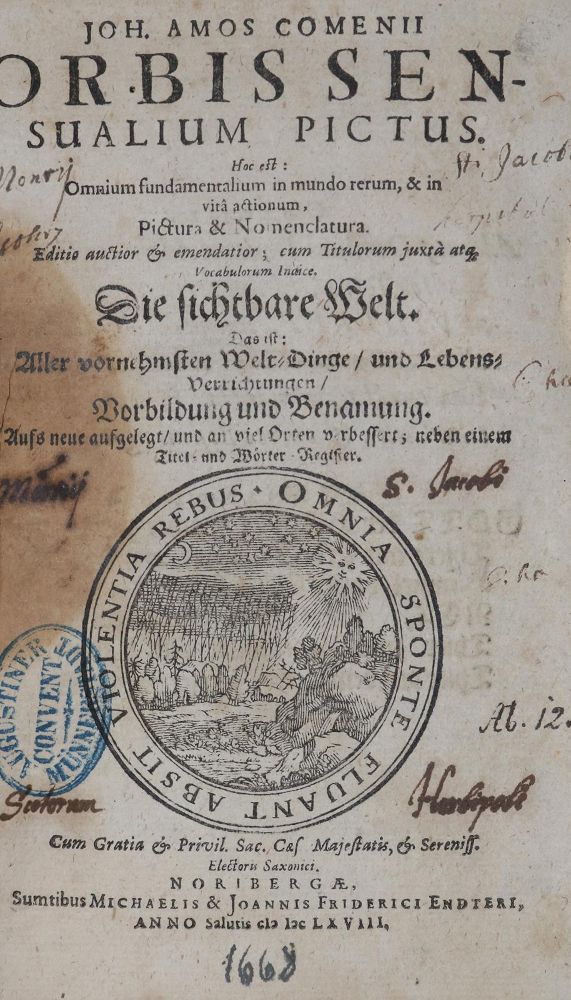 JOH. AMOS COMENII
ORBIS SEN-
SUALIUM PICTUS.
Hoc est:
Omnium fundamentalium in mundo rerum, & in
vitâ actionum,
Pictura & Nomenclatura.
Editio auctior & emendatior; cum Titulorum juxtà atq;
Vocabulorum Indice.
Die sichtbare Welt.
Das ist:
Aller vornehmsten Welt-Dinge/ und Lebens-
Verrichtungen/
Vorbildung und Benamung.
Aufs neue aufgelegt/ und an viel Orten verbessert; neben einem
Titel- und Wörter-Register.
S. Jacobi
OMNIA SPONTE FLUANT ABSIT VIOLENTIA REBUS
AUGUSTINER
CONVENT
Ab. 12.
Scotorum
Herbipoli
Cum Gratia & Privil. Sac. Cæs Majestatis, & Sereniss.
Electoris Saxonici.
NORIBERGÆ,
Sumtibus MICHAELIS & JOANNIS FRIDERICI ENDTERI,
ANNO Salutis cIↄ Iↄc LXVIII,
1668